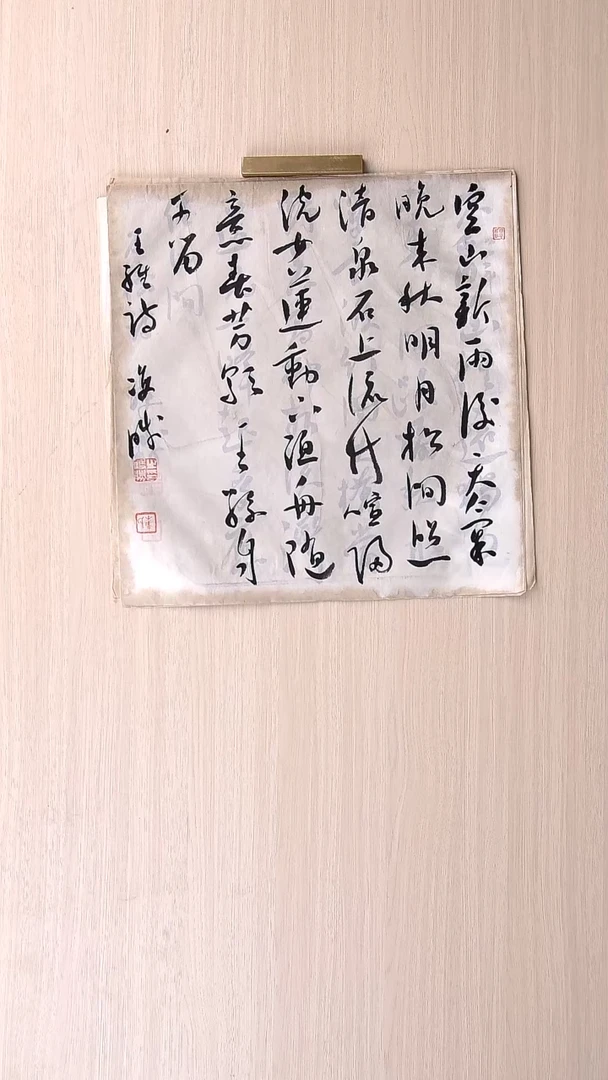 空山新雨後天氣
晚来秋明月松间照
清泉石上流竹喧归
浣女蓮動下渔舟随
意春芳歇王孫自
可留
王維诗